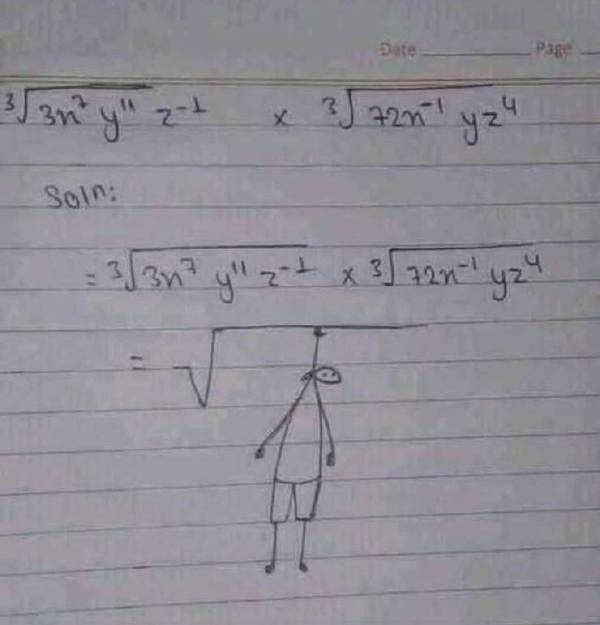 Date Page
∛(3n⁷ y¹¹ z⁻¹) × ∛(72n⁻¹ yz⁴)
Soln:
= ∛(3n⁷ y¹¹ z⁻¹) × ∛(72n⁻¹ yz⁴)
= √